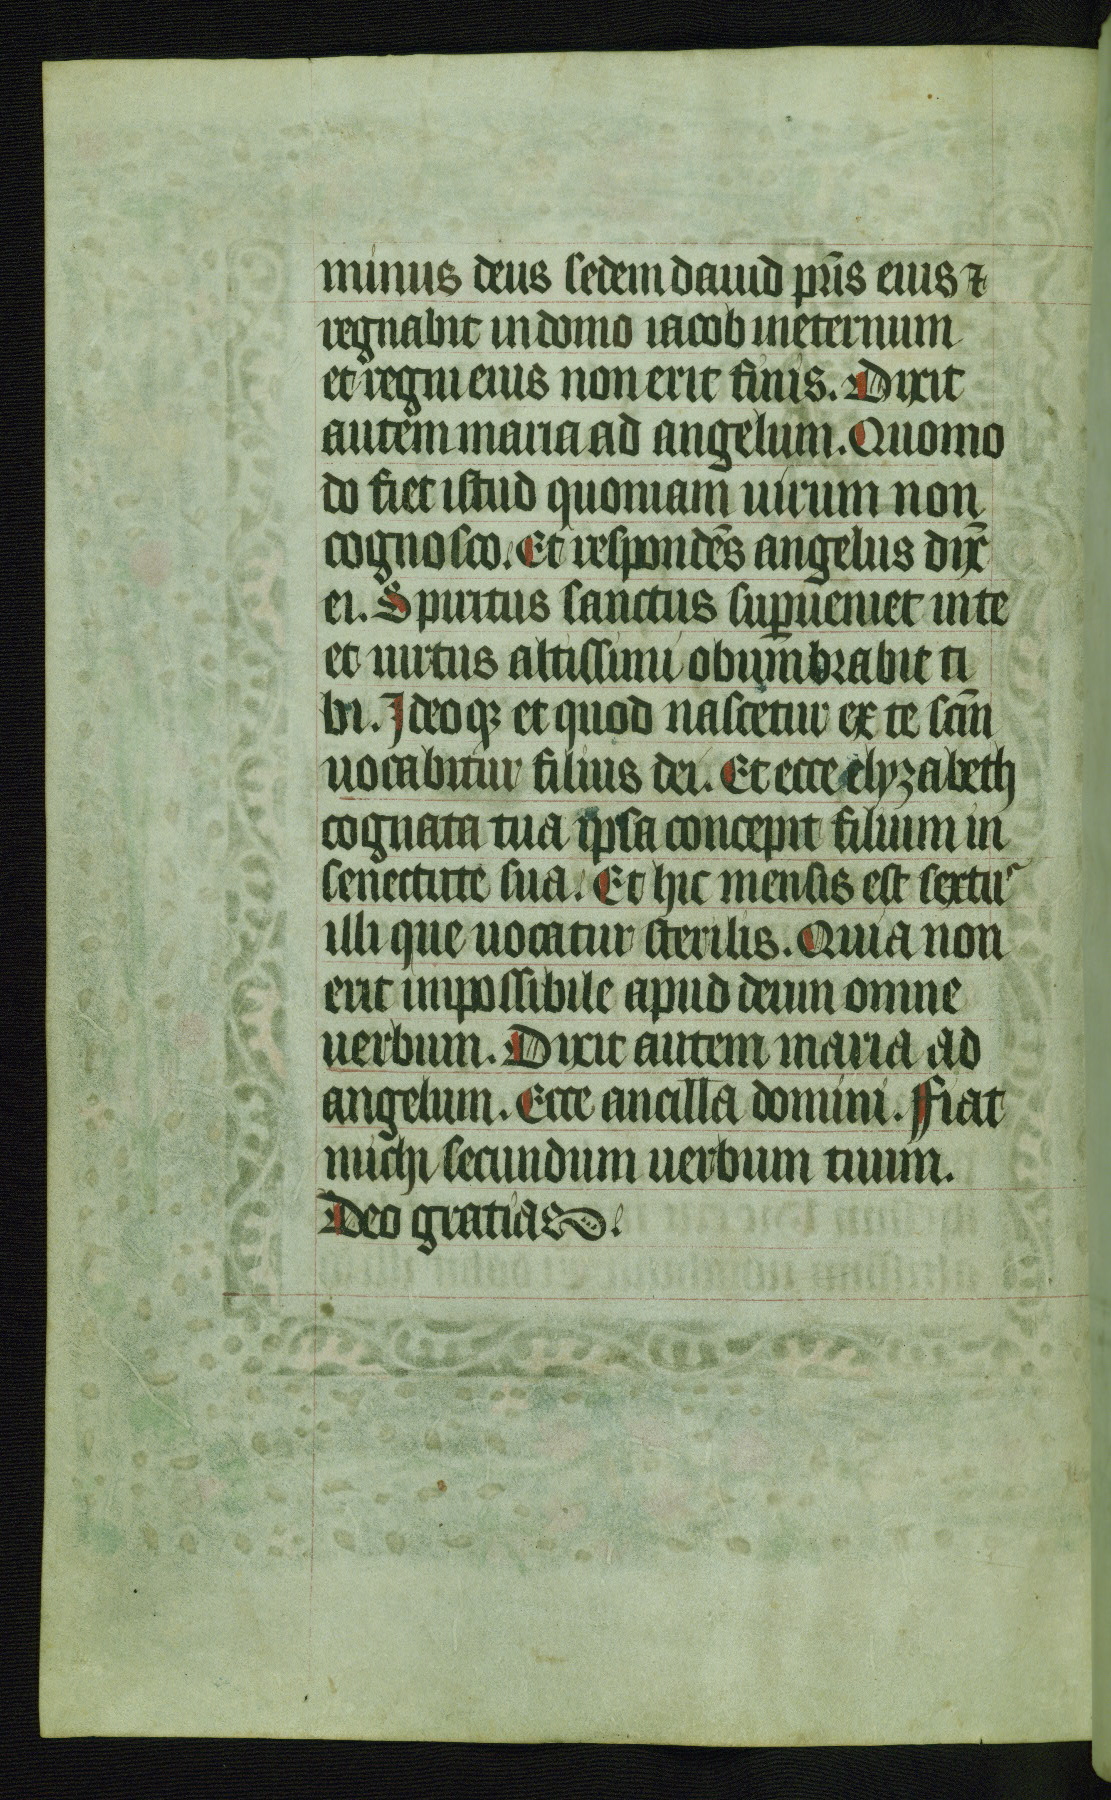 minus deus sedem dauid pr̄is eius ⁊
regnabit in domo iacob in eternum
et regni eius non erit finis. Dixit
autem maria ad angelum. Quomo
do fiet istud quoniam uirum non
cognosco. Et respondēs angelus dix̄
ei. Spiritus sanctus suꝑueniet in te
et uirtus altissimi obumbrabit ti
bi. Ideoqꝫ et quod nascetur ex te scm̄
uocabitur filius dei. Et ecce elyzabeth
cognata tua ipsa concepit filium in
senectute sua. Et hic mensis est sextuˢ
illi que uocatur sterilis. Quia non
erit impossibile apud deum omne
uerbum. Dixit autem maria ad
angelum. Ecce ancilla domini. Fiat
michi secundum uerbum tuum.
Deo gratias.